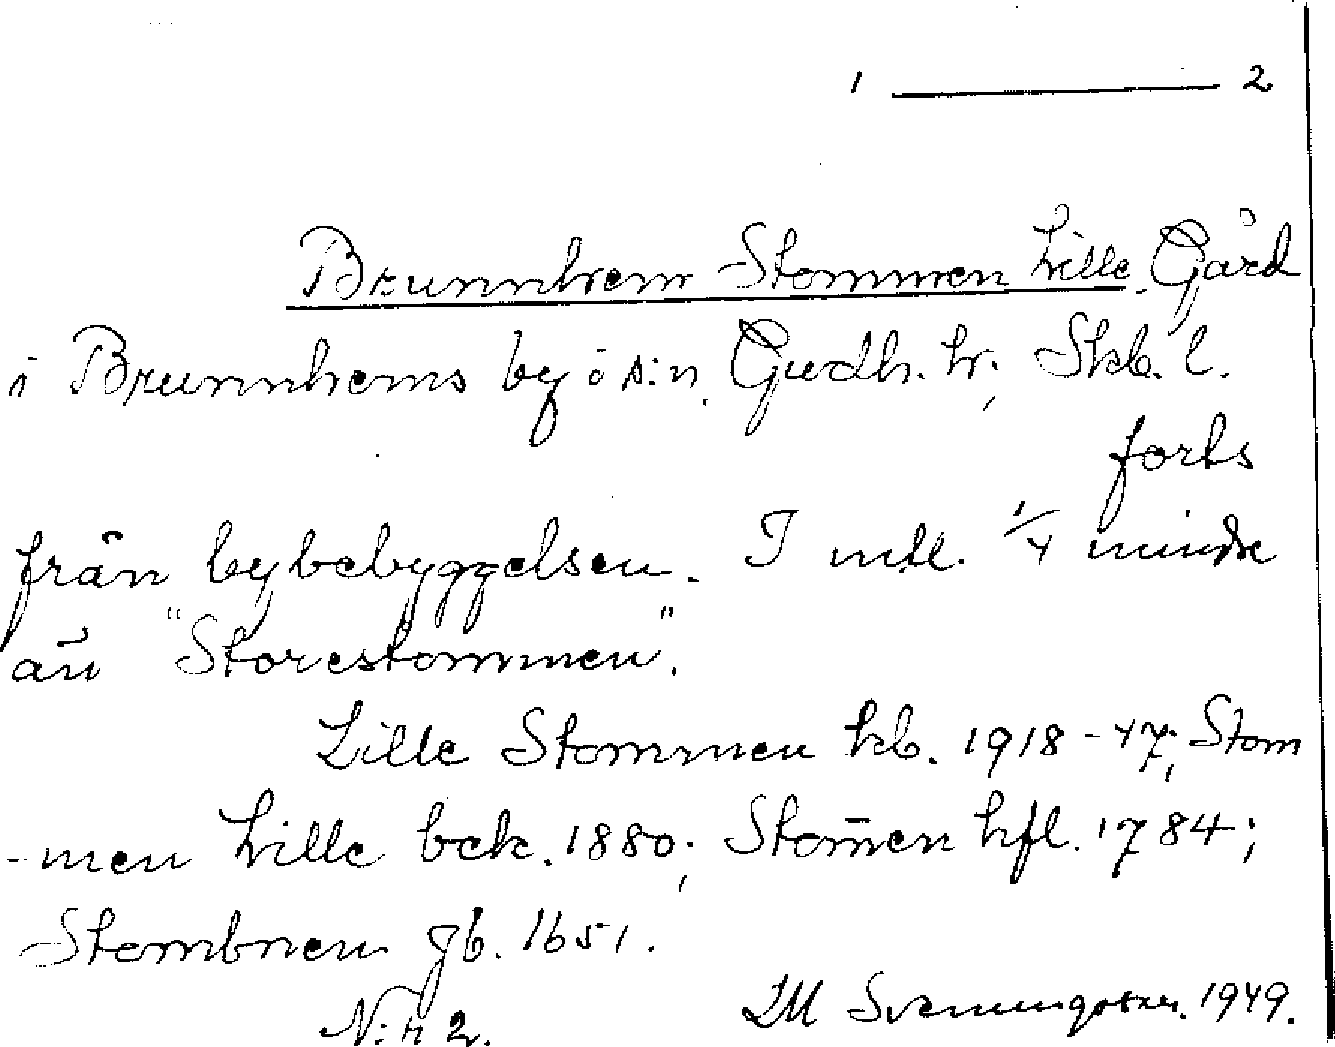 1 ——— 2
Brunnhem Stommen Lille. Gård
i Brunnhems by o s:n, Gudh. hr; Skb. l.
forts
från bybebyggelsen. I mtl. 1/4 mindre
än "Storestommen".
Lille Stommen kb. 1918-47; Stom
-men Lille bck. 1880; Stom̄en hfl. 1784;
Stombnen gb. 1651.
N:r 2. LM Svenungsson. 1949.